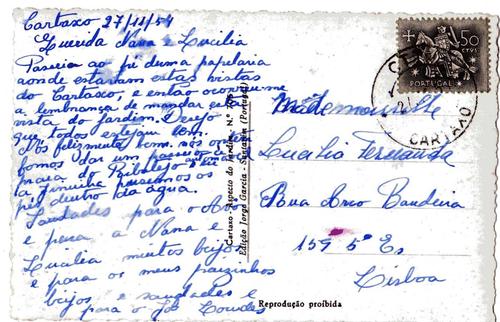 Cartaxo 27/11/54
Querida Nana e Lucilia
Passeria ao pé duma papelaria
aonde estavam estas vistas
do Cartaxo, e então ocorreu-me
a lembrança de mandar esta
vista do Jardim. Desejo
que todos estejam bem.
Nós felizmente bem. nós
fomos dar um passeio
praia do Ribatejo
pusemos os
pés dentro da água.
Saudades para o Avô
e para a Nana e
Lucilia muitos beijos
e para os meus paizinhos
beijos e saudades e
para o Lourdes
Cartaxo - Aspecto do Jardim
Edição Jorge Garcia - Santarém (Portugal)
50
PORTUGAL
CARTAXO
Mademoiselle
Lucilia Fernanda
Rua Arco Bandeira
159 5º E.
Lisboa
Reprodução proibida